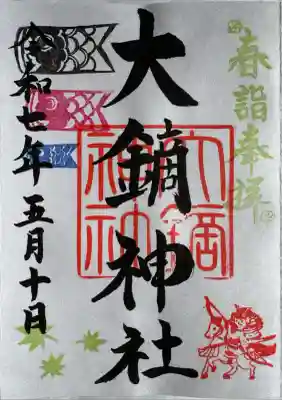 春詣奉拝
大鏑神社
令和七年五月十日